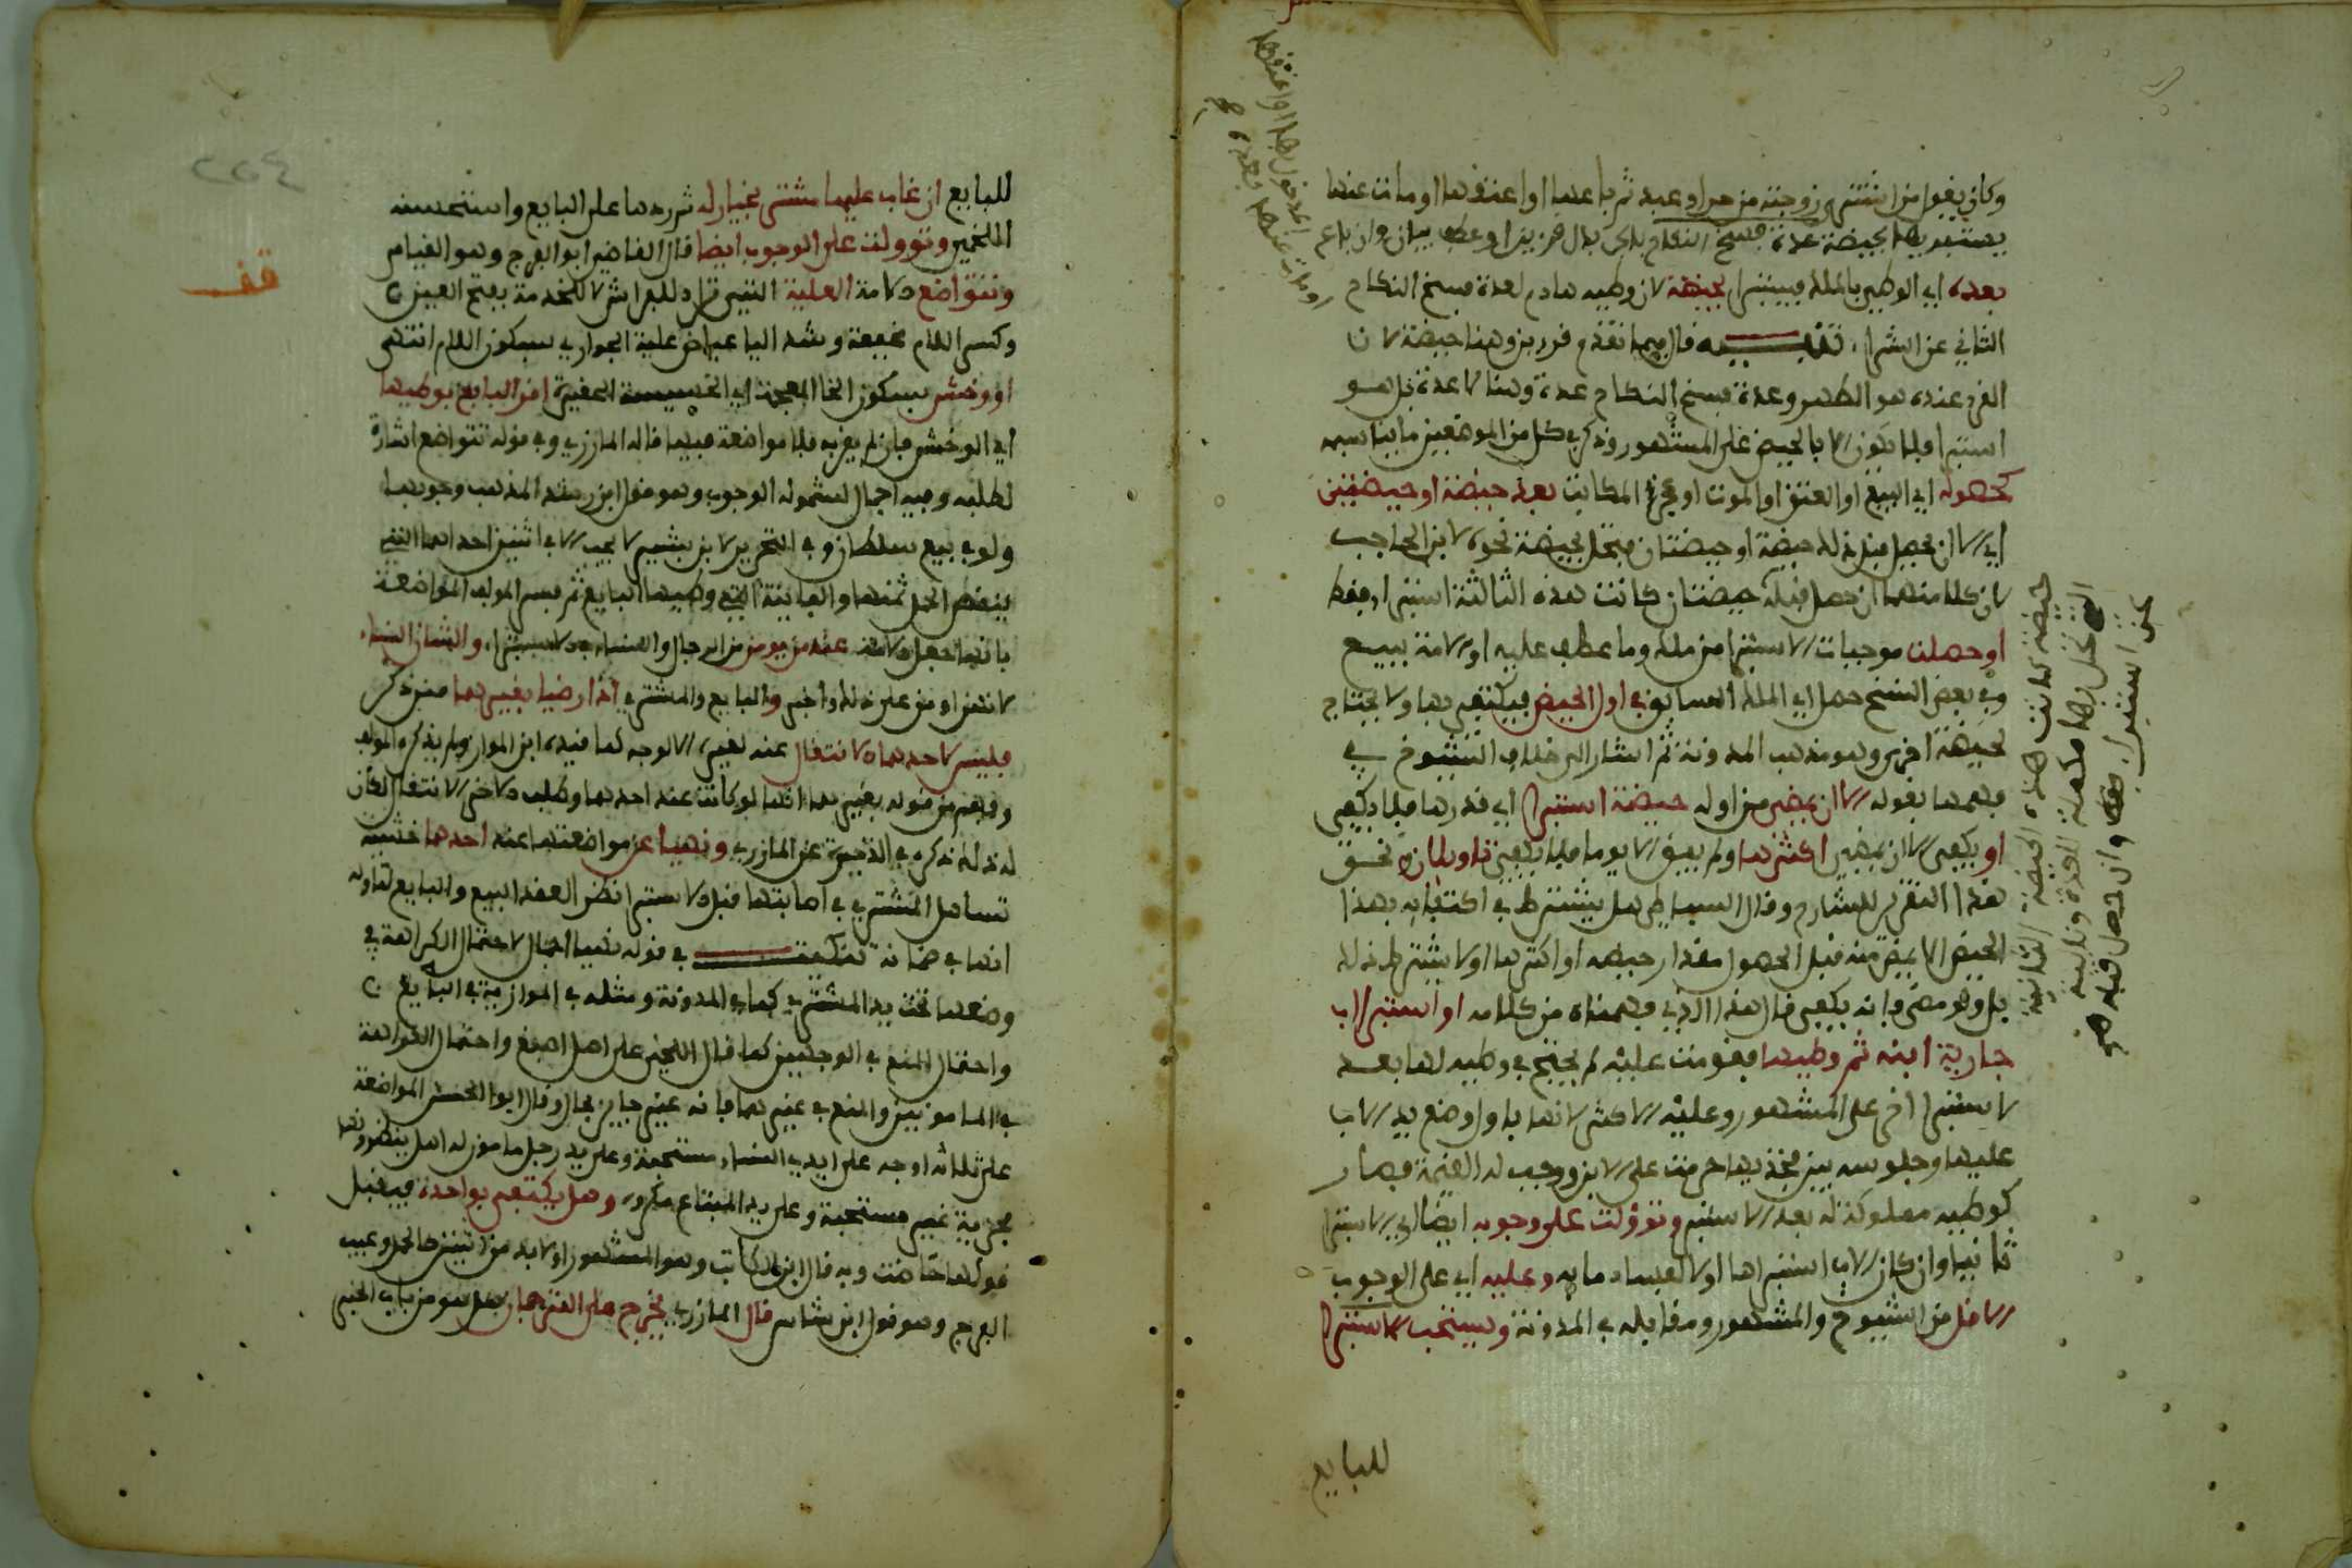 وكان يقول من اشترى زوجته من حر او عبد ثم باعها او اعتقها او مات عنها
يستبريها بحيضة عدة فسخ النكاح بلي بدل قرءين او عطف بيان وان باع
بعده اي الوطي بالملك فيستبرا بحيضة لان وطيه هادم لعدة فسخ النكاح
الناشي عن الشراء تنبيه قال فيما تقدم قرءين وهنا حيضة لان
القرء عنده هو الطهر وعدة فسخ النكاح عدة وهنا لا عدة بل هو
استبرا فلا يكون الا بالحيض على المشهور وذكر في كل من الموضعين ما يناسبه
كحصوله اي البيع او العتق او الموت او عجز المكاتب بعد حيضة او حيضتين
اي الا ان يحصل قبل ذلك حيضة او حيضتان فتحل بحيضة نحوه لابن الحاجب
لان كلا منهما ان حصل قبله حيضتان كانت هذه الثالثة استبراء فقط
او حصلت موجبات الاستبرا من ملك وما عطف عليه او الامة ببيع
وفي بعض النسخ حصل اي الملك السابق في اول الحيض فيكتفي بها ولا يحتاج
لحيضة اخرى وهو مذهب المدونة ثم اشار الى خلاف الشيوخ في
فهمها بقوله الا ان يمضي من اوله حيضة استبرا اي قدرها فلا يكفي
او يكفي الا ان يمضي اكثرها ولم يبق الا يوما فلا يكفي تاويلان نحو
هذا التقرير للشارح وقال البساطي هل يشترط في اكتفايه بهذا
الحيض الا يمضي منه قبل الحصول مقدار حيضه او اكثرها او لا يشترط ذلك
بل ولو مضى فانه يكفي قال هذا الذي فهمناه من كلامه او استبرا اب
جارية ابنه ثم وطيها فقومت عليه لم يحتج في وطيه لها بعد
لاستبرا اخر على المشهور وعليه الاكثر لانها باول وضع يد الاب
عليها وجلوسه بين فخذيها حرمت على الابن ووجب له القيمة فصار
كوطيه مملوكة له بعد الاستبر وتؤولت على وجوبه ايضا اي الاستبرا
ثانيا وان كان الاب استبراها اولا لفساد مايه وعليه اي على الوجوب
الاقل من الشيوخ والمشهور ومقابله في المدونة ويستحب الاستبرا
للبايع
حيضة كانت هذه الحيضة الثانية
التي تحل بها مكملة للعدة وثالثة
عن استبراء فقط وان حصل قبله حيض
للبايع ان غاب عليها مشتر بخيار له ثم ردها على البايع واستحسنه
اللخمي وتؤولت على الوجوب ايضا قال القاضي ابو الفرج وهو القياس
وتتواضع الامة العلية التي تراد للفراش لا للخدمة بفتح العين
وكسر اللام مخففة وشد اليا عياض علية الجواري بسكون اللام انتهى
او وخش بسكون الخا المعجمة اي الخسيسة الحقيرة اقر البايع بوطيها
اي الوخش فان لم يقر به فلا مواضعة فيها قاله المازري وفي قوله تتواضع اشارة
لطلبه وفيه اجمال لشموله الوجوب وهو قول ابن رشد المذهب وجوبها
ولو في بيع سلطان وفي التحرير لابن بشير لا يجب الا في اثنين احداهما التي
ينقص الحمل ثمنها والثانية التي وطيها البايع ثم فسر المولف المواضعة
بانها جعل الامة عند من يومن من الرجال والنساء مدة الاستبراء والشان النساء
لانهن اومن على ذلك واخبر والبايع والمشتري اذا رضيا بغيرهما ممن ذكر
فليس لاحدهما الانتقال عنه لغيره الا لوجه كما قيده ابن المواز ولم يذكره المولف
وفهم من قوله بغيرهما انها لو كانت عند احدهما وطلب الاخر الانتقال لكان
له ذلك ذكره في الذخيرة عن المازري ونهيا عن مواضعتها عند احدهما خشية
تساهل المشتري في اصابتها قبل الاستبرا نظرا لعقد البيع والبايع لتاوله
انها في ضمانه تنكيت في قوله نهيا اجمال لاحتمال الكراهة في
وضعها تحت يد المشتري كما في المدونة ومثله في الموازية في البايع
واحتمال المنع في الوجهين كما قال اللخمي على اصل اصبغ واحتمال الكراهة
في المامونين والمنع في غيرهما فانه غير جايز بحال وقال ابو الحسن المواضعة
على ثلاثة اوجه على ايدي النساء مستحبة وعلى يد رجل مامون له اهل ينظرونها
مجزية غير مستحبة وعلى يد المبتاع مكروه وهل يكتفى بواحدة فيقبل
قولها حاضت وبه قال ابن الكاتب وهو المشهور او لا بد من اثنين كالحمل وعيب
الفرج وهو قول ابن شاس قال المازري يخرج على الترجمان هل هو من باب الخبر
قف
٢٥٤